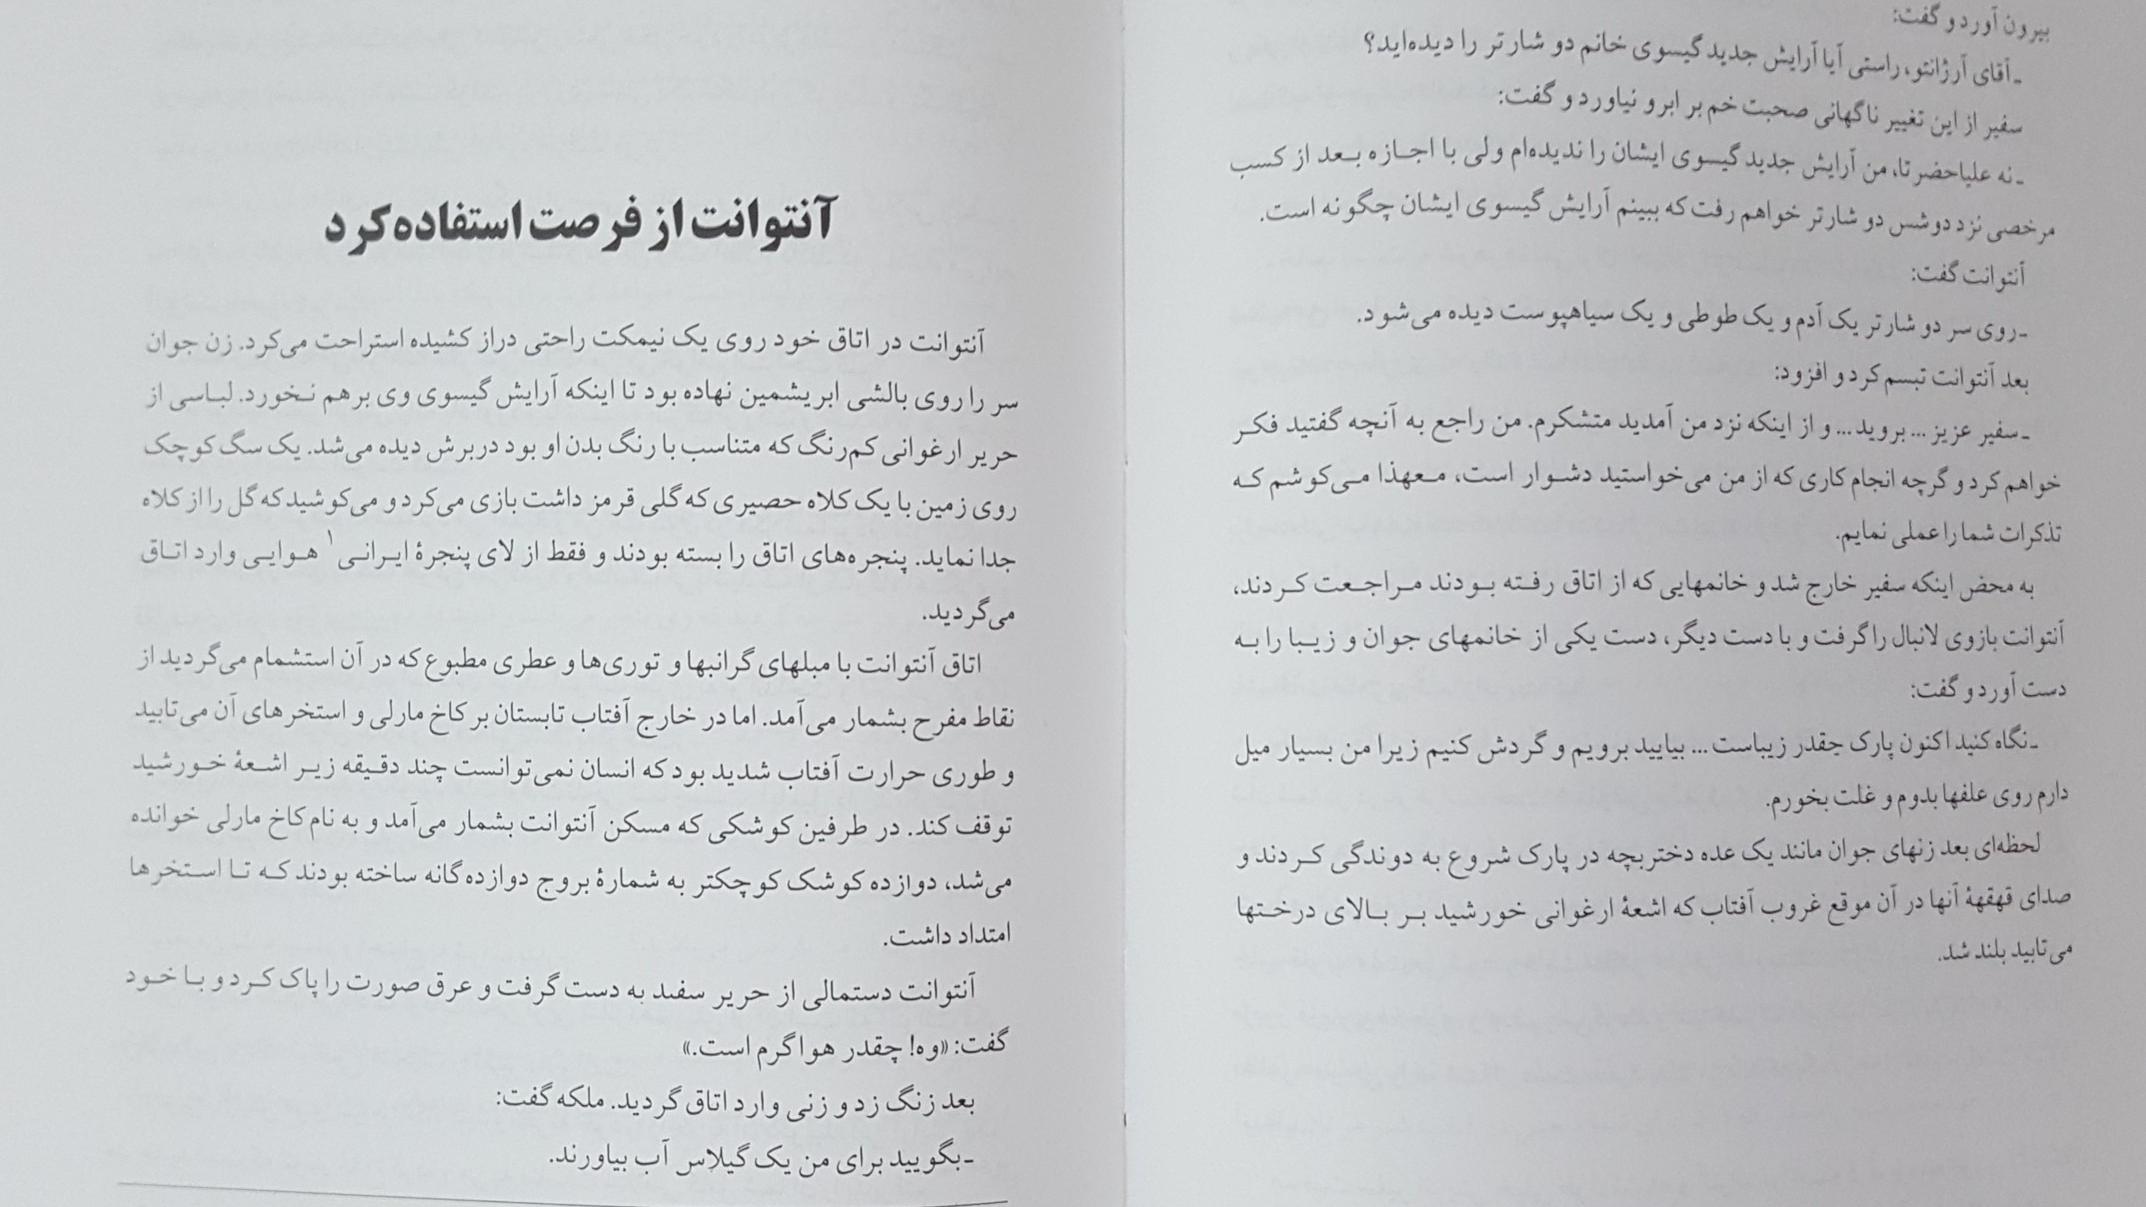 بیرون آورد و گفت:
ـ آقای آرژانتو، راستی آیا آرایش جدید گیسوی خانم دو شارتر را دیده‌اید؟
سفیر از این تغییر ناگهانی صحبت خم بر ابرو نیاورد و گفت:
ـ نه علیاحضرتا، من آرایش جدید گیسوی ایشان را ندیده‌ام ولی با اجازه بعد از کسب
مرخصی نزد دوشس دو شارتر خواهم رفت که ببینم آرایش گیسوی ایشان چگونه است.
آنتوانت گفت:
ـ روی سر دو شارتر یک آدم و یک طوطی و یک سیاهپوست دیده می‌شود.
بعد آنتوانت تبسم کرد و افزود:
ـ سفیر عزیز ... بروید ... و از اینکه نزد من آمدید متشکرم. من راجع به آنچه گفتید فکر
خواهم کرد و گرچه انجام کاری که از من می‌خواستید دشوار است، معهذا می‌کوشم که
تذکرات شما را عملی نمایم.
به محض اینکه سفیر خارج شد و خانمهایی که از اتاق رفته بودند مراجعت کردند،
آنتوانت بازوی لانبال را گرفت و با دست دیگر، دست یکی از خانمهای جوان و زیبا را به
دست آورد و گفت:
ـ نگاه کنید اکنون پارک چقدر زیباست ... بیایید برویم و گردش کنیم زیرا من بسیار میل
دارم روی علفها بدوم و غلت بخورم.
لحظه‌ای بعد زنهای جوان مانند یک عده دختربچه در پارک شروع به دوندگی کردند و
صدای قهقههٔ آنها در آن موقع غروب آفتاب که اشعهٔ ارغوانی خورشید بر بالای درختها
می‌تابید بلند شد.
آنتوانت از فرصت استفاده کرد
آنتوانت در اتاق خود روی یک نیمکت راحتی دراز کشیده استراحت می‌کرد. زن جوان
سر را روی بالشی ابریشمین نهاده بود تا اینکه آرایش گیسوی وی برهم نخورد. لباسی از
حریر ارغوانی کم‌رنگ که متناسب با رنگ بدن او بود دربرش دیده می‌شد. یک سگ کوچک
روی زمین با یک کلاه حصیری که گلی قرمز داشت بازی می‌کرد و می‌کوشید که گل را از کلاه
جدا نماید. پنجره‌های اتاق را بسته بودند و فقط از لای پنجرهٔ ایرانی۱ هوایی وارد اتاق
می‌گردید.
اتاق آنتوانت با مبلهای گرانبها و توری‌ها و عطری مطبوع که در آن استشمام می‌گردید از
نقاط مفرح بشمار می‌آمد. اما در خارج آفتاب تابستان بر کاخ مارلی و استخرهای آن می‌تابید
و طوری حرارت آفتاب شدید بود که انسان نمی‌توانست چند دقیقه زیر اشعهٔ خورشید
توقف کند. در طرفین کوشکی که مسکن آنتوانت بشمار می‌آمد و به نام کاخ مارلی خوانده
می‌شد، دوازده کوشک کوچکتر به شمارهٔ بروج دوازده‌گانه ساخته بودند که تا استخرها
امتداد داشت.
آنتوانت دستمالی از حریر سفید به دست گرفت و عرق صورت را پاک کرد و با خود
گفت: «وه! چقدر هوا گرم است.»
بعد زنگ زد و زنی وارد اتاق گردید. ملکه گفت:
ـ بگویید برای من یک گیلاس آب بیاورند.